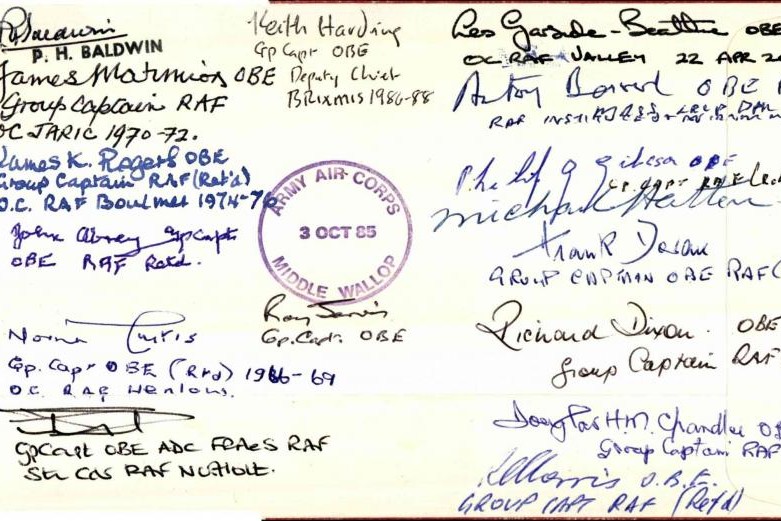 P. Baldwin
P. H. BALDWIN
James Marmion OBE
Group Captain RAF
OC JARIC 1970-72.
James K. Rogers OBE
Group Captain RAF (Ret'd)
O.C. RAF Boulmer 1974-76
John Gp Capt
OBE RAF Retd.
Norman Curtis
Gp. Capt OBE (Rtd) 1966-69
O.C. RAF Henlow.
Gp Capt OBE ADC FRAeS RAF
Stn Cdr RAF
Keith Harding
Gp Capt OBE
Deputy Chief
BRIXMIS 1986-88
ARMY AIR CORPS
3 OCT 85
MIDDLE WALLOP
Ron Jarvis
Gp. Capt. OBE
Les Garside-Beattie OBE
OC RAF VALLEY 22 APR
OBE
RAF
Philip G Gibson OBE
GP CAPT RAF
Michael
Frank
GROUP CAPTAIN OBE RAF
Richard Dixon. OBE
Group Captain RAF
Douglas H.M. Chandler
Group Captain RAF
Morris O.B.E.
GROUP CAPT RAF (Ret'd)